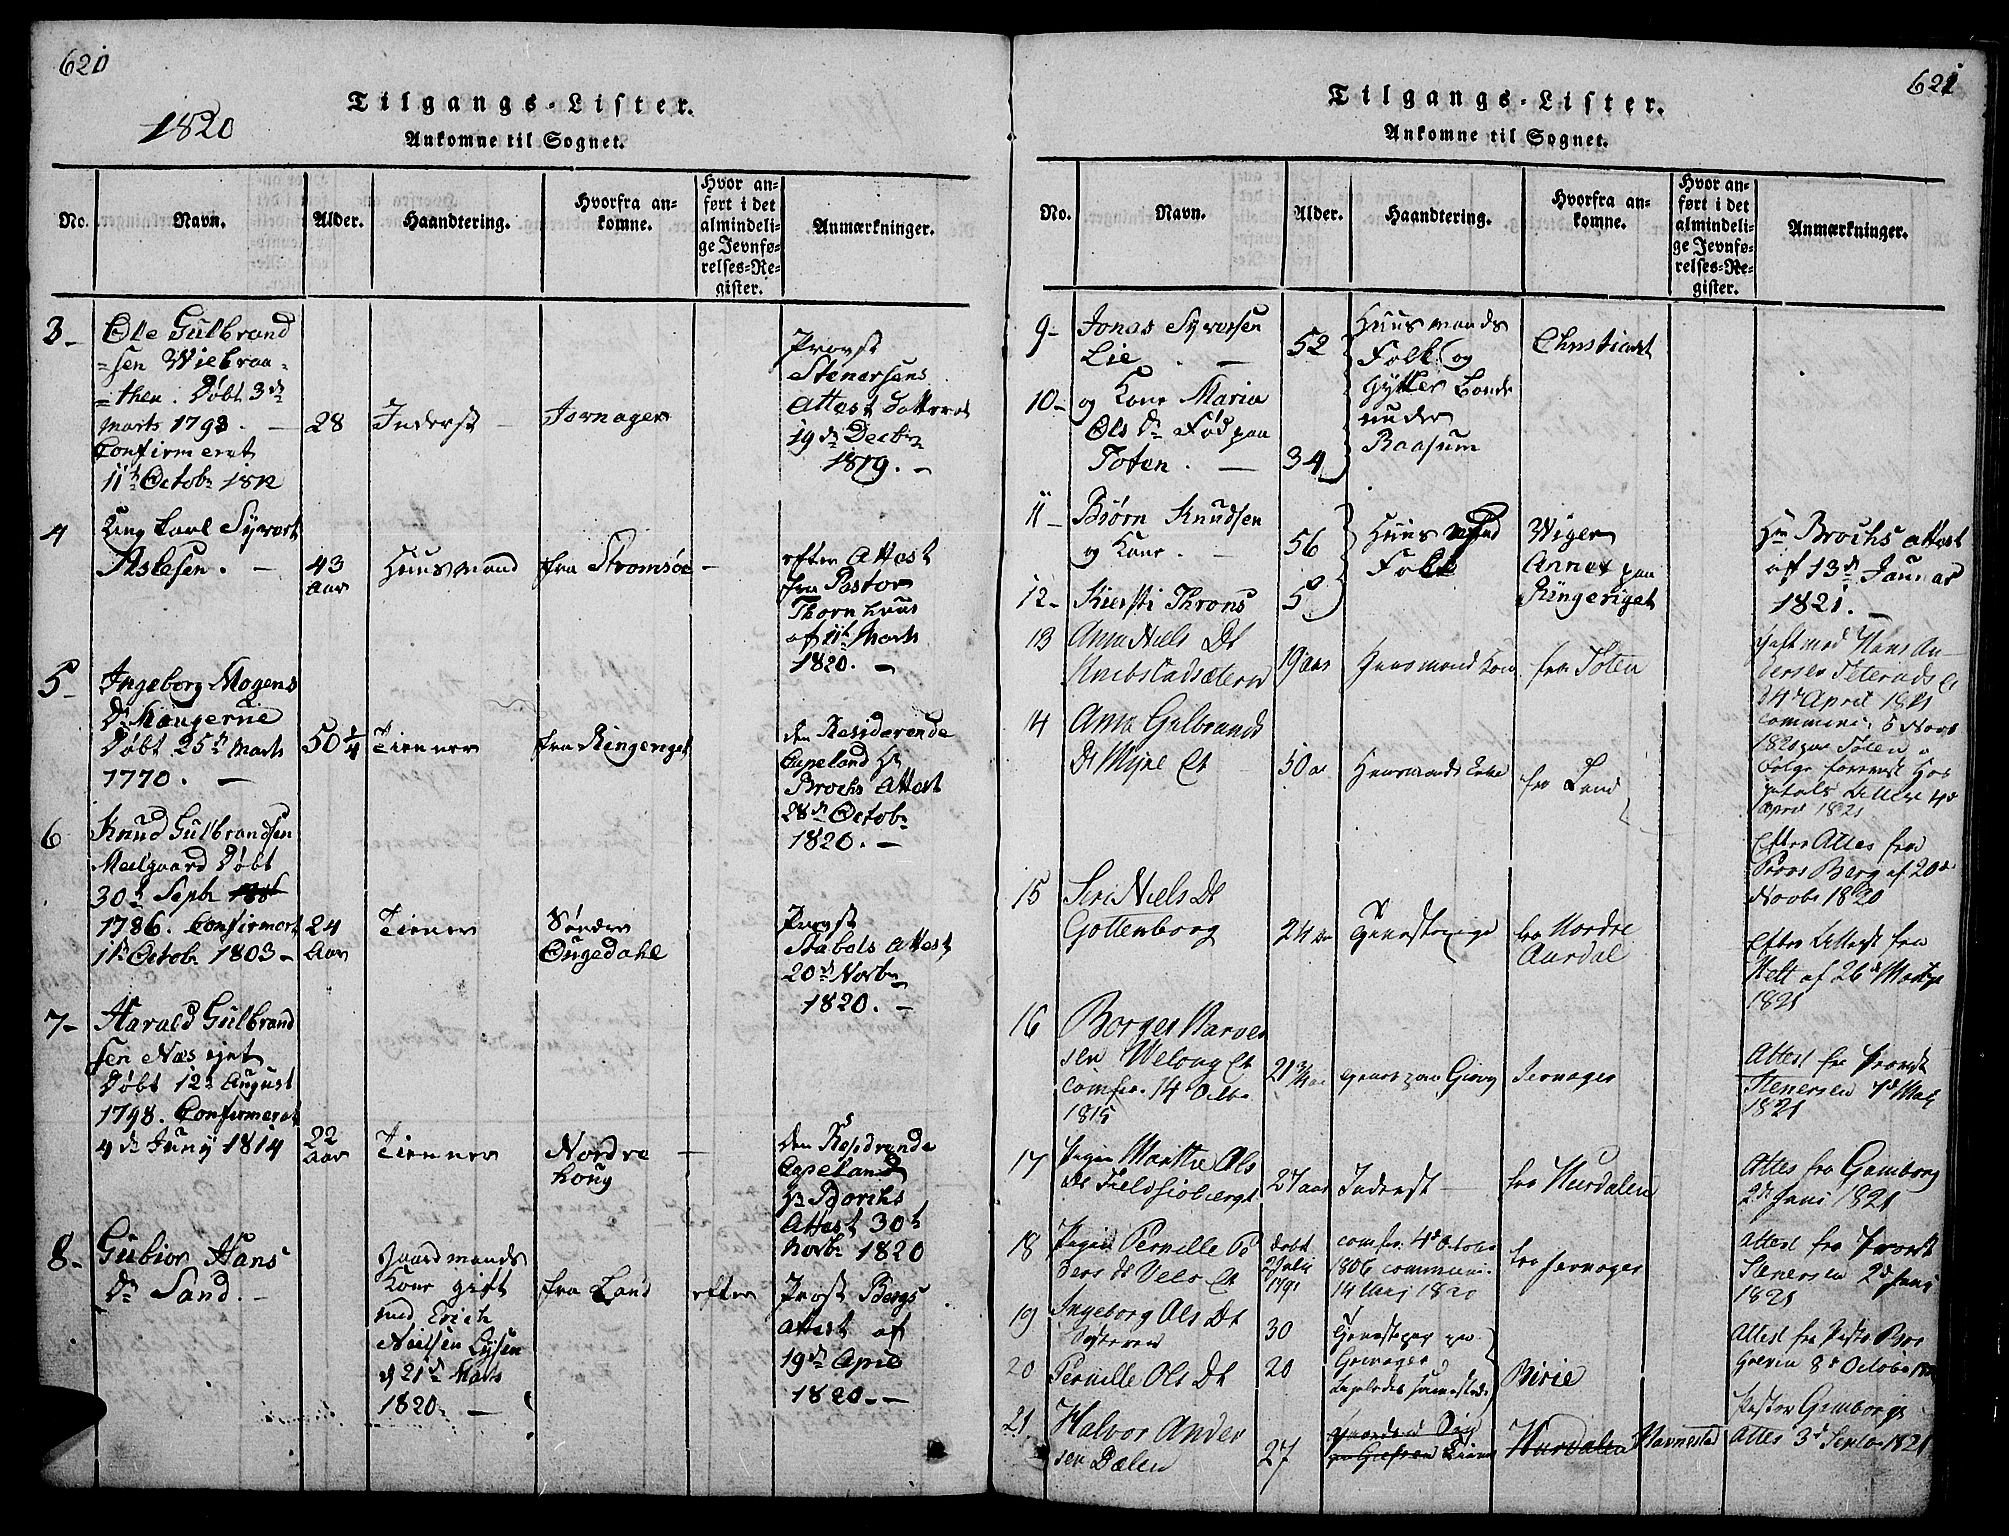 620
1820
Tilgangs-Lister.
Ankomne til Sognet.
No.
Navn.
Alder.
Haandtering.
Hvorfra an-
komne.
Hvor an-
ført i det
almindeli-
ge Jevnfø-
relses-Re-
gister.
Anmærkninger.
3-
Ole Gulbrand
=sen Wiebraa-
=then. Døbt 3de
Marts 1793.
Confirmeret
11te Octobr 1812
28
Inderst
Jevnager
Provst
Stenersens
Attest Datteret
19de Decbr
1819.
4
Ung Karl Syvert
Aslesen.
43
Aar
Huusmand
fra Strømsøe
efter Attest
fra Pastor
af 11te Marts
1820.
5-
Ingeborg Mogens
Dr Haugerne
Døbt 25de Marts
1770.
50 1/4
Tienner
fra Ringeriget
den Residerende
Capeland Hr
Brochs Attest
28de Octobr
1820.
6
Knud Gulbrandsen
Meilgaard Døbt
30te Septbr
1786. Confirmert
11te Octobr 1803
24
Aar
Tienner
Søndre
Ougedahl
Provst
Stabels Attest
20de Novbr
1820.
7-
Harald Gulbrand
sen Næs ejet
Døbt 12te August
1798. Confirmeret
4de Juny 1814
22
Aar
Tienner
Nordre
Houg
den Resdrende
Capeland
Hr Borchs
Attest 30te
Novbr 1820
8-
Gubior Hans
Dr Sand.
Gaardmands
Kone gift
med Erich
Nielsen Lysen
d 21de Marts
1820
fra Land
efter
Prost Bergs
Attest af
19de April
1820.
621
Tilgangs-Lister.
Ankomne til Sognet.
No.
Navn.
Alder.
Haandtering.
Hvorfra an-
komne.
Hvor an-
ført i det
almindeli-
ge Jevnfø-
relses-Re-
gister.
Anmærkninger.
9-
Jonas Syversen
Lie
52
Huusmands
Folk og
under
Raasum
Christiania
10-
og Kone Maria
Ols Dr Fød paa
Toten.
34
11-
Biørn Knudsen
og Kone.
56
Huusmand
Folk
Wiger
Annex paa
Ringeriget
Hr Brochs Attest
af 13de Januar
1821.
12-
Kiersti Throns
5
13
Anne Niels Dt
19 aar
Huusmand Kone
fra Toten
Gift med Hans An-
dersen
24de April 1821
14
Anne Gulbrands
Dt Myre Et
50 a
fra Land
1821 paa Toten
April 1821
Efter Attes fra
Provs Berg af 20de
Novbr 1820
15
Siri Niels Dt
Gottenborg
24 aar
Tienestepige
fra Nordre
Aurdal
Efter Attest fra
1821
16
Borger Narve
sen Meloug Et
Confir. 14 Octbr
1815
21 3/4 aar
Jevnager
Attest fra Provst
Stenersen 7de Maj
1821
17
Pigen Marthe Ols
Dt Fieldsiøberget
27 aar
Inderst
fra Hurdalen
Attes fra Gamborg
2de Juni 1821
18
Pigen Pernille Pe
ders dt Velo Et
Døbt
2 Julii
1791
confir. 4de Octobr
1806 communi.
14 Maj 1820
fra Jevnager
Attest fra Provst
Stenersen 2de Junij
1821
19
Ingeborg Ols Dt
30
Birie
20
Pernille Ols Dt
20
21
Halvor Ander
sen Dælen
27
Hurdalen
Nannestad
Pastor Gamborgs
Attes 3de Septbr 1821